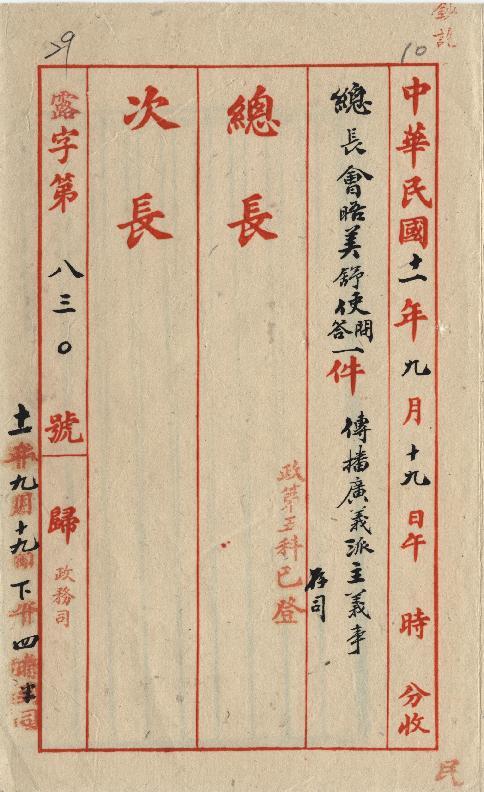 鈔訖
10
29
中華民國十一年九月十九日午 時 分收
總長會晤美舒使問答一件 傳播廣義派主義事
存司
政第五科已登
總長
次長
露字第 八三〇 號 歸 政務司
十一年九月十九 下 四 半
民